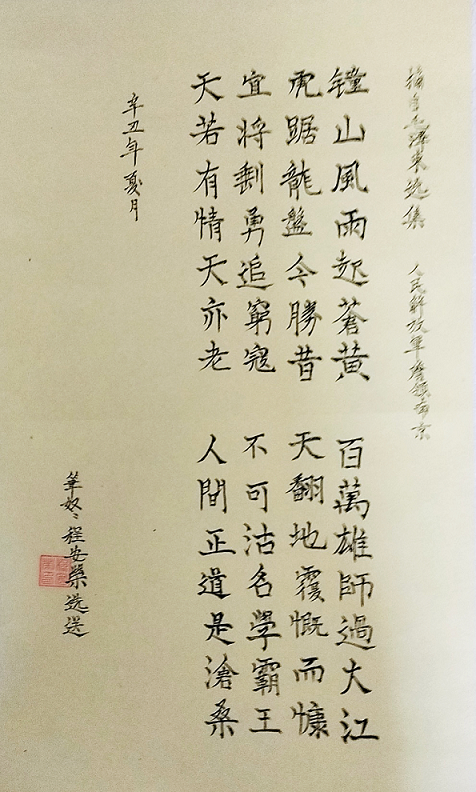 摘自毛澤東选集 人民解放軍領南京
鐘山風雨起蒼黄 百萬雄師過大江
虎踞龍盤今勝昔 天翻地覆慨而慷
宜將剩勇追窮寇 不可沽名學霸王
天若有情天亦老 人間正道是滄桑
辛丑年夏月
筆奴、程安榮选送